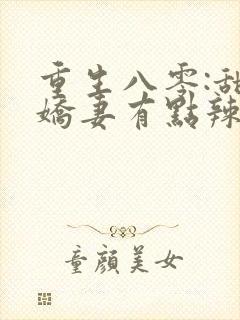 重生八零:甜
嬌妻有點辣
童顏美女